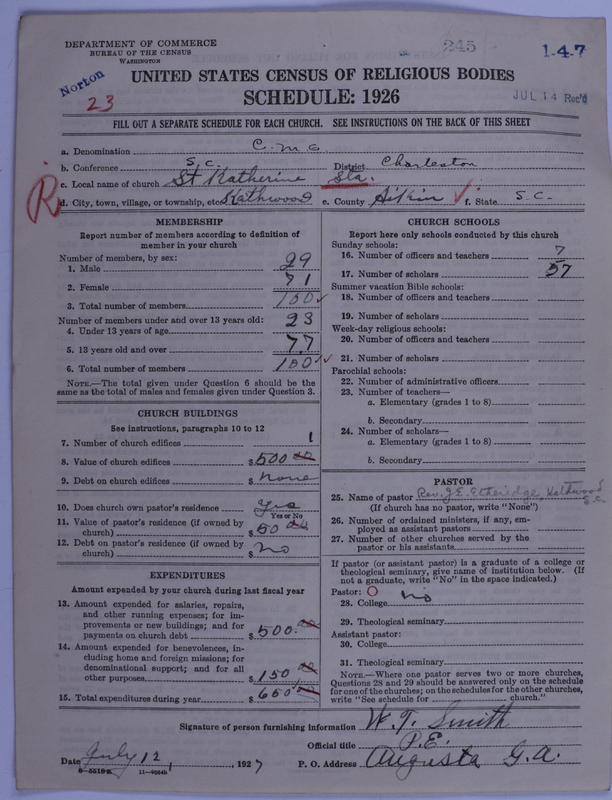 DEPARTMENT OF COMMERCE
BUREAU OF THE CENSUS
WASHINGTON
245
1-4-7
Norton
23
UNITED STATES CENSUS OF RELIGIOUS BODIES
SCHEDULE: 1926
JUL 14 Rec'd
FILL OUT A SEPARATE SCHEDULE FOR EACH CHURCH. SEE INSTRUCTIONS ON THE BACK OF THIS SHEET
a. Denomination C.M.E
b. Conference S.C. District Charleston
c. Local name of church St Katherine Sta.
R
d. City, town, village, or township, etc Kathwood e. County Aikin f. State S.C.
MEMBERSHIP
Report number of members according to definition of
member in your church
Number of members, by sex:
1. Male 29
2. Female 71
3. Total number of members 100
Number of members under and over 13 years old:
4. Under 13 years of age 23
5. 13 years old and over 77
6. Total number of members 100
NOTE.—The total given under Question 6 should be
same as the total of males and females given under Question 3.
CHURCH BUILDINGS
See instructions, paragraphs 10 to 12
7. Number of church edifices 1
8. Value of church edifices $ 500 00
9. Debt on church edifices $ None
10. Does church own pastor's residence? Yes
Yes or No
11. Value of pastor's residence (if owned by
church) $ 50 00
12. Debt on pastor's residence (if owned by
church) $ No
EXPENDITURES
Amount expended by your church during last fiscal year
13. Amount expended for salaries, repairs,
and other running expenses; for im-
provements or new buildings; and for
payments on church debt $ 500.00
14. Amount expended for benevolences, in-
cluding home and foreign missions; for
denominational support; and for all
other purposes $ 150 00
15. Total expenditures during year $ 650 00
CHURCH SCHOOLS
Report here only schools conducted by this church
Sunday schools:
16. Number of officers and teachers 7
17. Number of scholars 57
Summer vacation Bible schools:
18. Number of officers and teachers
19. Number of scholars
Week-day religious schools:
20. Number of officers and teachers
21. Number of scholars
Parochial schools:
22. Number of administrative officers
23. Number of teachers—
a. Elementary (grades 1 to 8)
b. Secondary
24. Number of scholars—
a. Elementary (grades 1 to 8)
b. Secondary
PASTOR
25. Name of pastor Rev. J.E. Etheridge Kathwood S.C.
(If church has no pastor, write "None")
26. Number of ordained ministers, if any, em-
ployed as assistant pastors
27. Number of other churches served by the
pastor or his assistants
If pastor (or assistant pastor) is a graduate of a college or
theological seminary, give name of institution below. (If
not a graduate, write "No" in the space indicated.)
Pastor: O
28. College No
29. Theological seminary
Assistant pastor:
30. College
31. Theological seminary
NOTE.—Where one pastor serves two or more churches,
Questions 28 and 29 should be answered only on the schedule
for one of the churches; on the schedules for the other churches,
write "See schedule for church."
Signature of person furnishing information W. T. Smith
Official title P.E.
Date July 12, 1927 P. O. Address Augusta G.A.
11-9864b